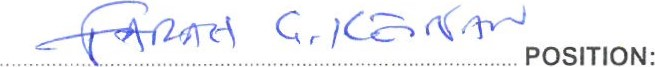 FARAH G. KEINAN POSITION: